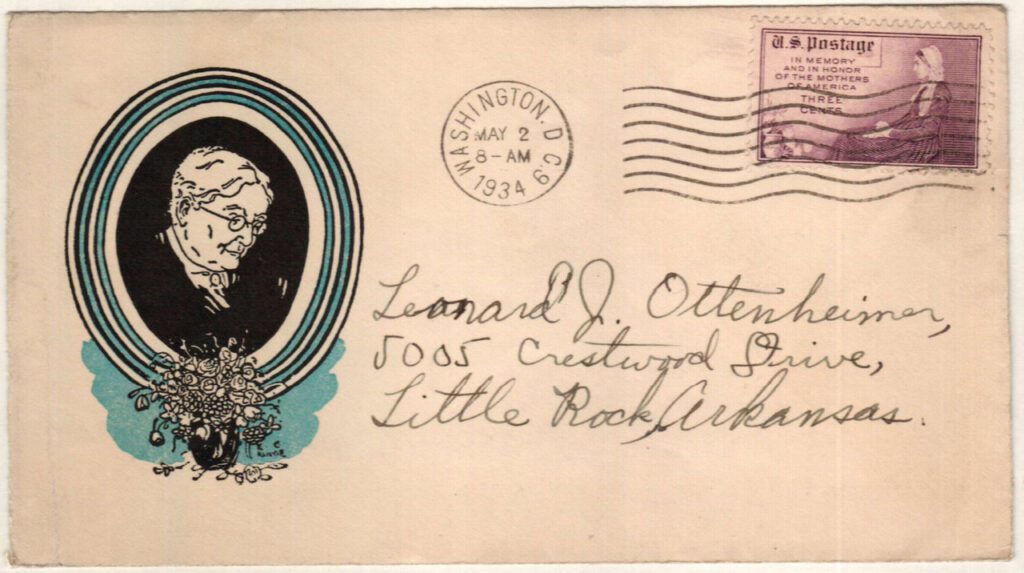 WASHINGTON, D.C. 9
MAY 2
8-AM
1934
U.S. Postage
IN MEMORY
AND IN HONOR
OF THE MOTHERS
OF AMERICA
THREE
CENTS
Leonard J. Ottenheimer,
5005 Crestwood Drive,
Little Rock, Arkansas.